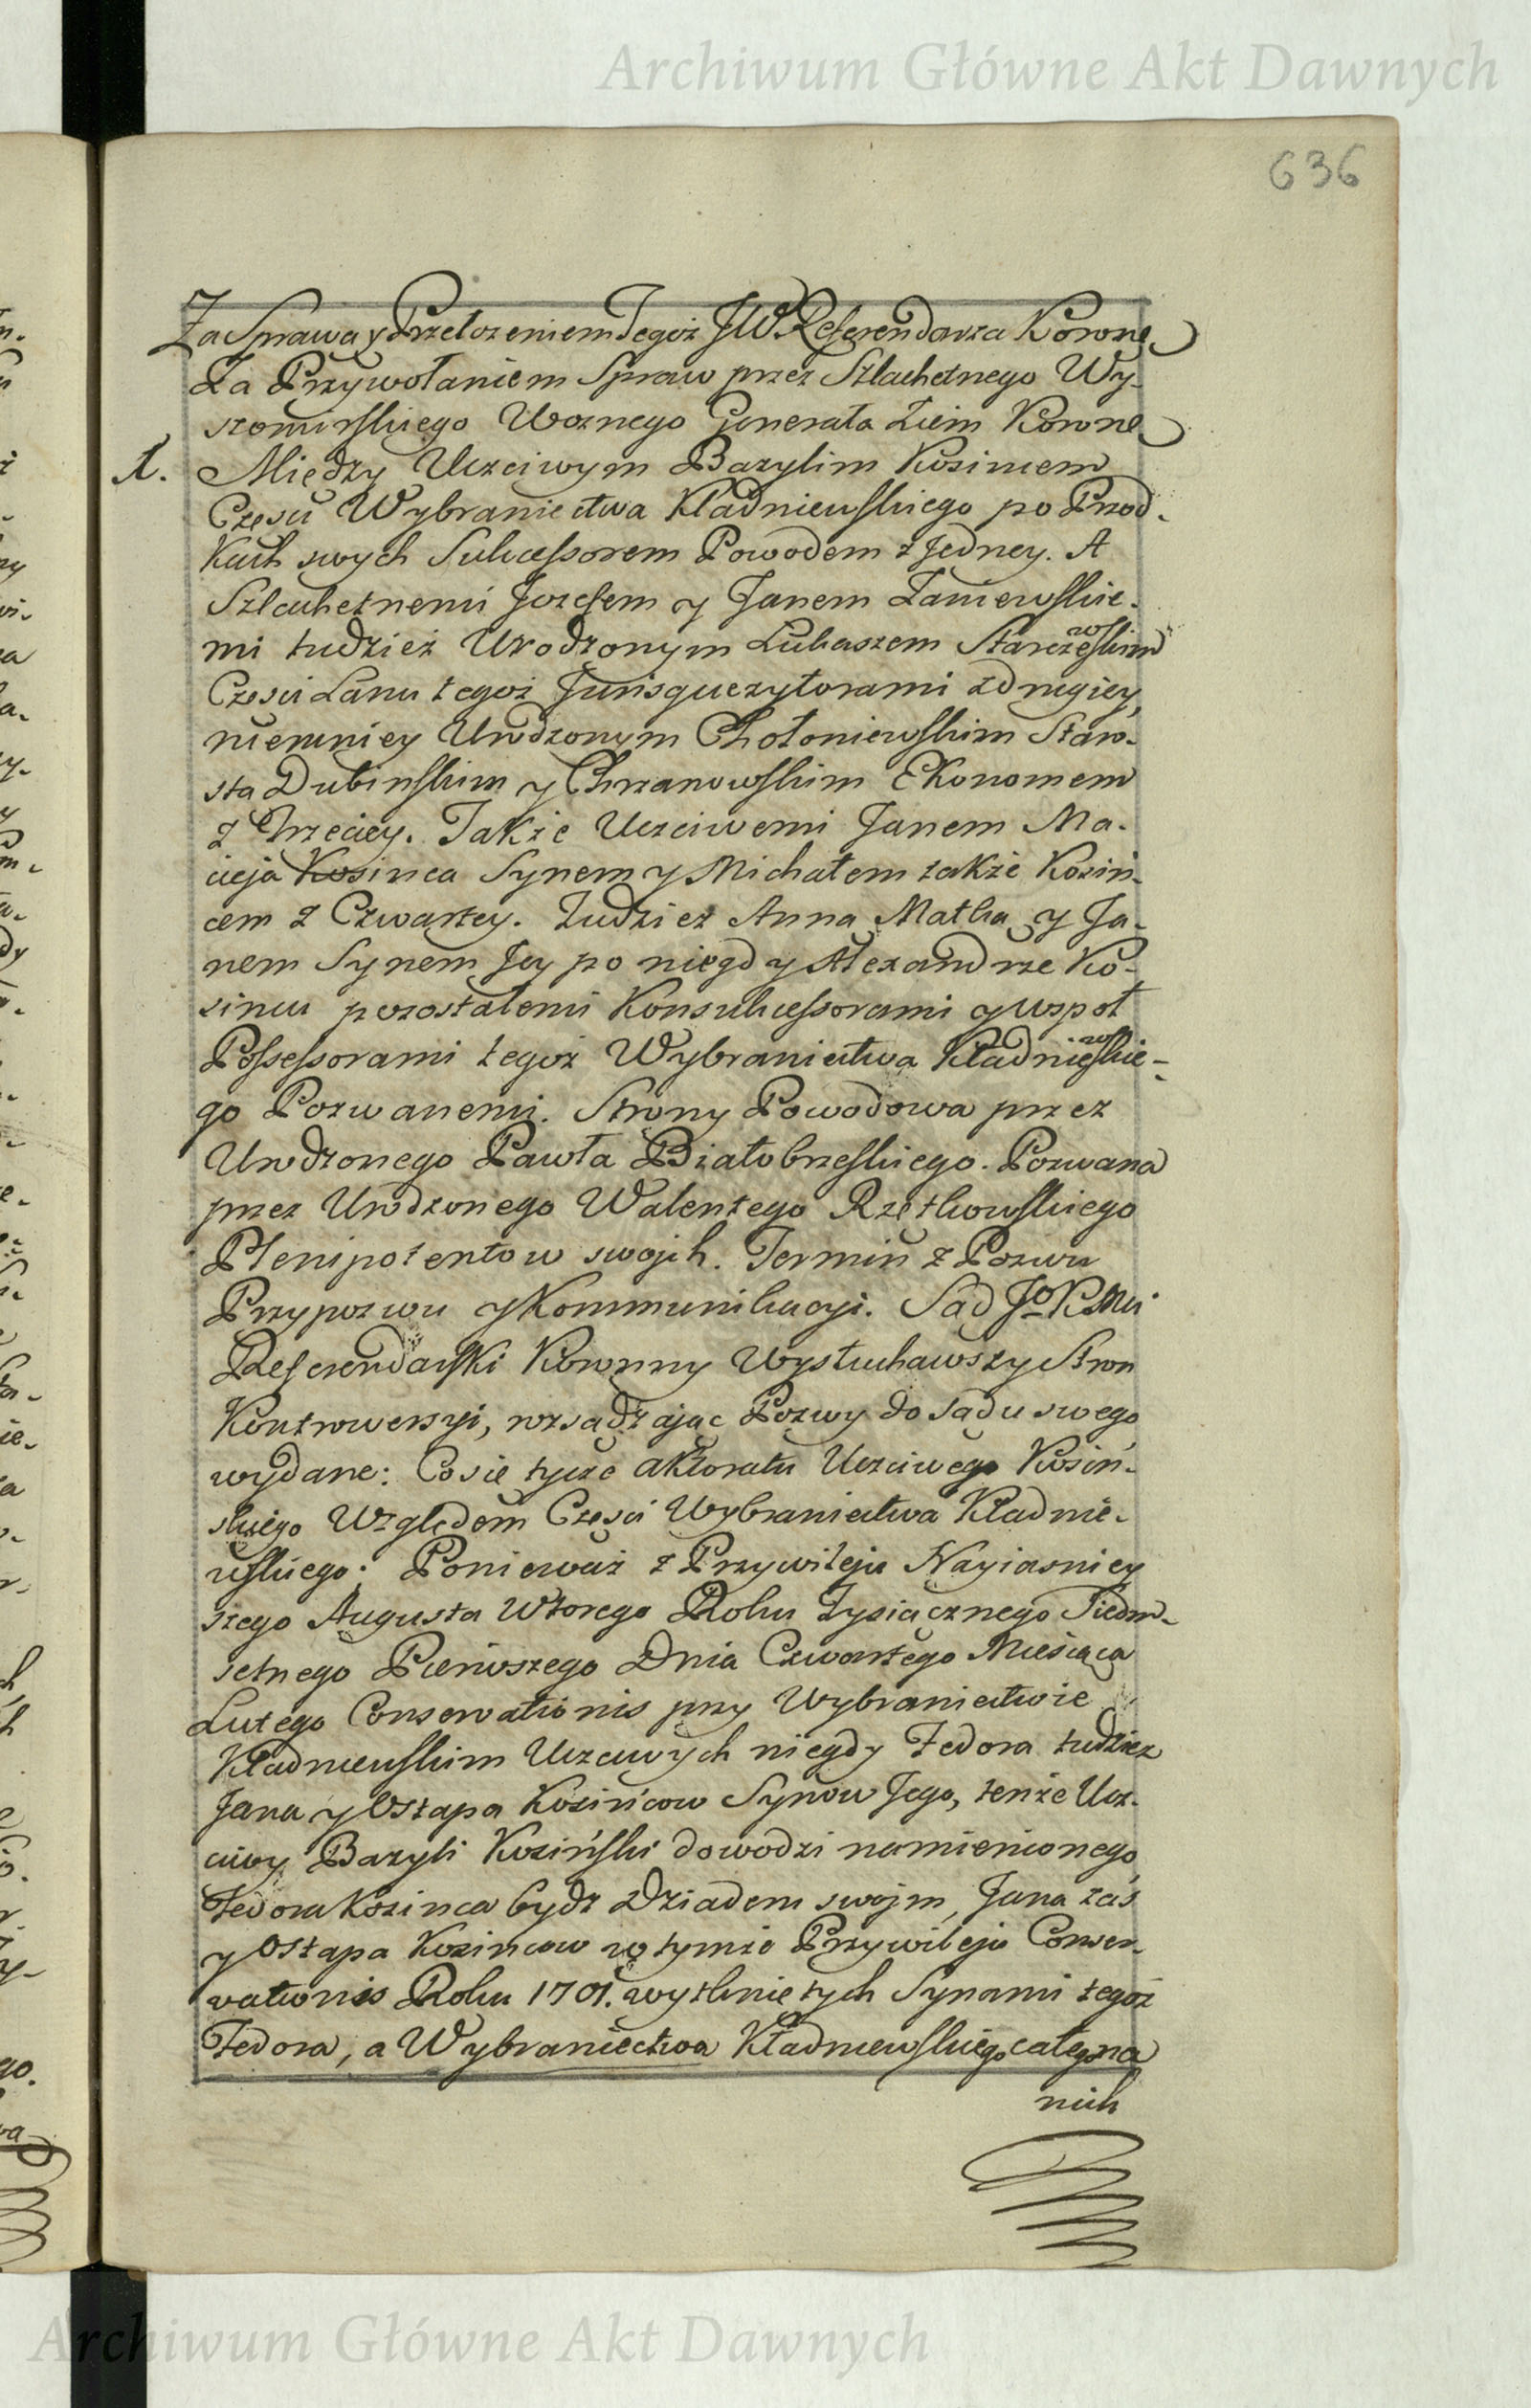 Archiwum Główne Akt Dawnych
636
Za Sprawą y Przełozeniem Tegoż JW. Referendarza Koronne.
Za Przywołaniem Spraw przez Szlachetnego Wy-
szomirskiego Woznego Generała Ziem Koronne
1. Między Uczciwym Bazylim Kosincem
Częsci Wybraniectwa Kładniewskiego po Przod-
kach swych Sukcessorem Powodem z Jedney. A
Szlachetnemi Jozefem y Janem Zaniewskie-
mi tudziez Urodzonym Łukaszem Starczewskim
Częsci Łanu tegoż Jurisquezytorami z drugiey,
niemniey Urodzonym Chołoniewskim Staro-
sta Dubinskim y Chrzanowskim Ekonomem
z Trzeciey. Także Uczciwemi Janem Ma-
cieja Kosinca Synem y Michałem także Kosin-
cem z Czwartey. Tudziez Anna Matka y Ja-
nem Synem Jey po niegdy Alexandrze Ko-
sincu pozostałemi Konsukcessorami y wspoł
Possessorami tegoż Wybraniectwa Kładniewskie-
go Pozwanemi. Strony Powodowa przez
Urodzonego Pawła Białobrzeskiego. Pozwana
przez Urodzonego Walentego Rzętkowskiego
Plenipotentow swojch. Termin z Pozwu
Przypozwu y Kommunikacyi. Sąd Jo KMci
Referendarski Koronny Wysłuchawszy Stron
Kontrowersyi, rozsądzając Pozwy do sądu swego
wydane: Co się tycze aktoratu Uczciwego Kosin-
skiego Względem Częsci Wybraniectwa Kładnie-
wskiego: Ponieważ z Przywileju Nayiasniey
szego Augusta Wtorego Roku Tysiącznego Siedm-
setnego Pierwszego Dnia Czwartego Miesiąca
Lutego Conservationis przy Wybraniectwie
Kładniewskim Uczciwych niegdy Fedora tudziez
Jana y Ostapa Kosińcow Synow Jego, tenże Ucz-
ciwy Bazyli Kosiński dowodzi namienionego
Fedora Kosinca bydz Dziadem swojm, Jana zaś
y Ostapa Kosincow w tymże Przywileju Conser-
vationis Roku 1701. wytknietych Synami tegoż
Fedora, a Wybraniectwa Kładniewskiego całego na
nich
Archiwum Główne Akt Dawnych